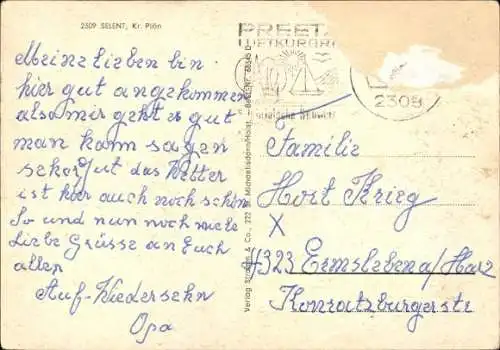 2309 SELENT, Kr. Plön
Meine Lieben bin
hier gut angekommen
also mir geht es gut
man kann sagen
sehr gut das Wetter
ist hier auch noch schön
So und nun noch viele
Liebe Grüsse an Euch
allen
Auf-Wiedersehn
Opa
PREETZ
LUFTKURORT
2308
Familie
Horst Krieg
X
4323 Ermsleben a/Harz
Konradsburgerstr
Verlag &amp; Co., Michaelisdonn/Holst.